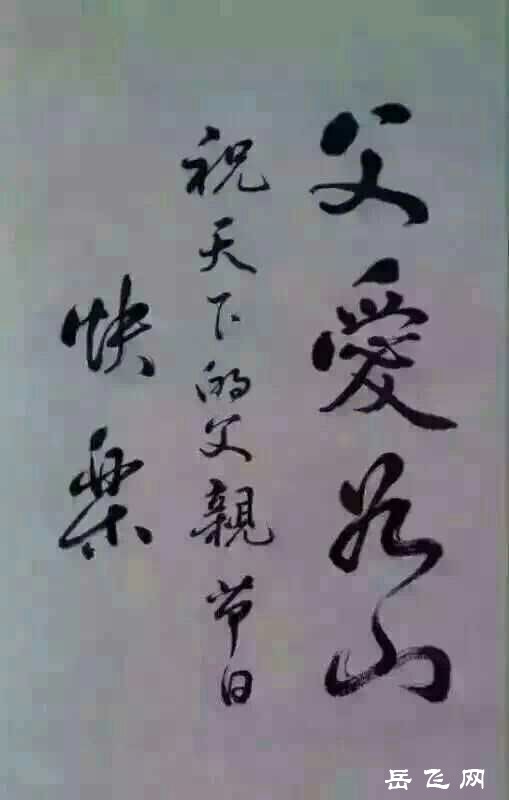 父愛如山
祝天下的父親节日
快樂
岳飞网